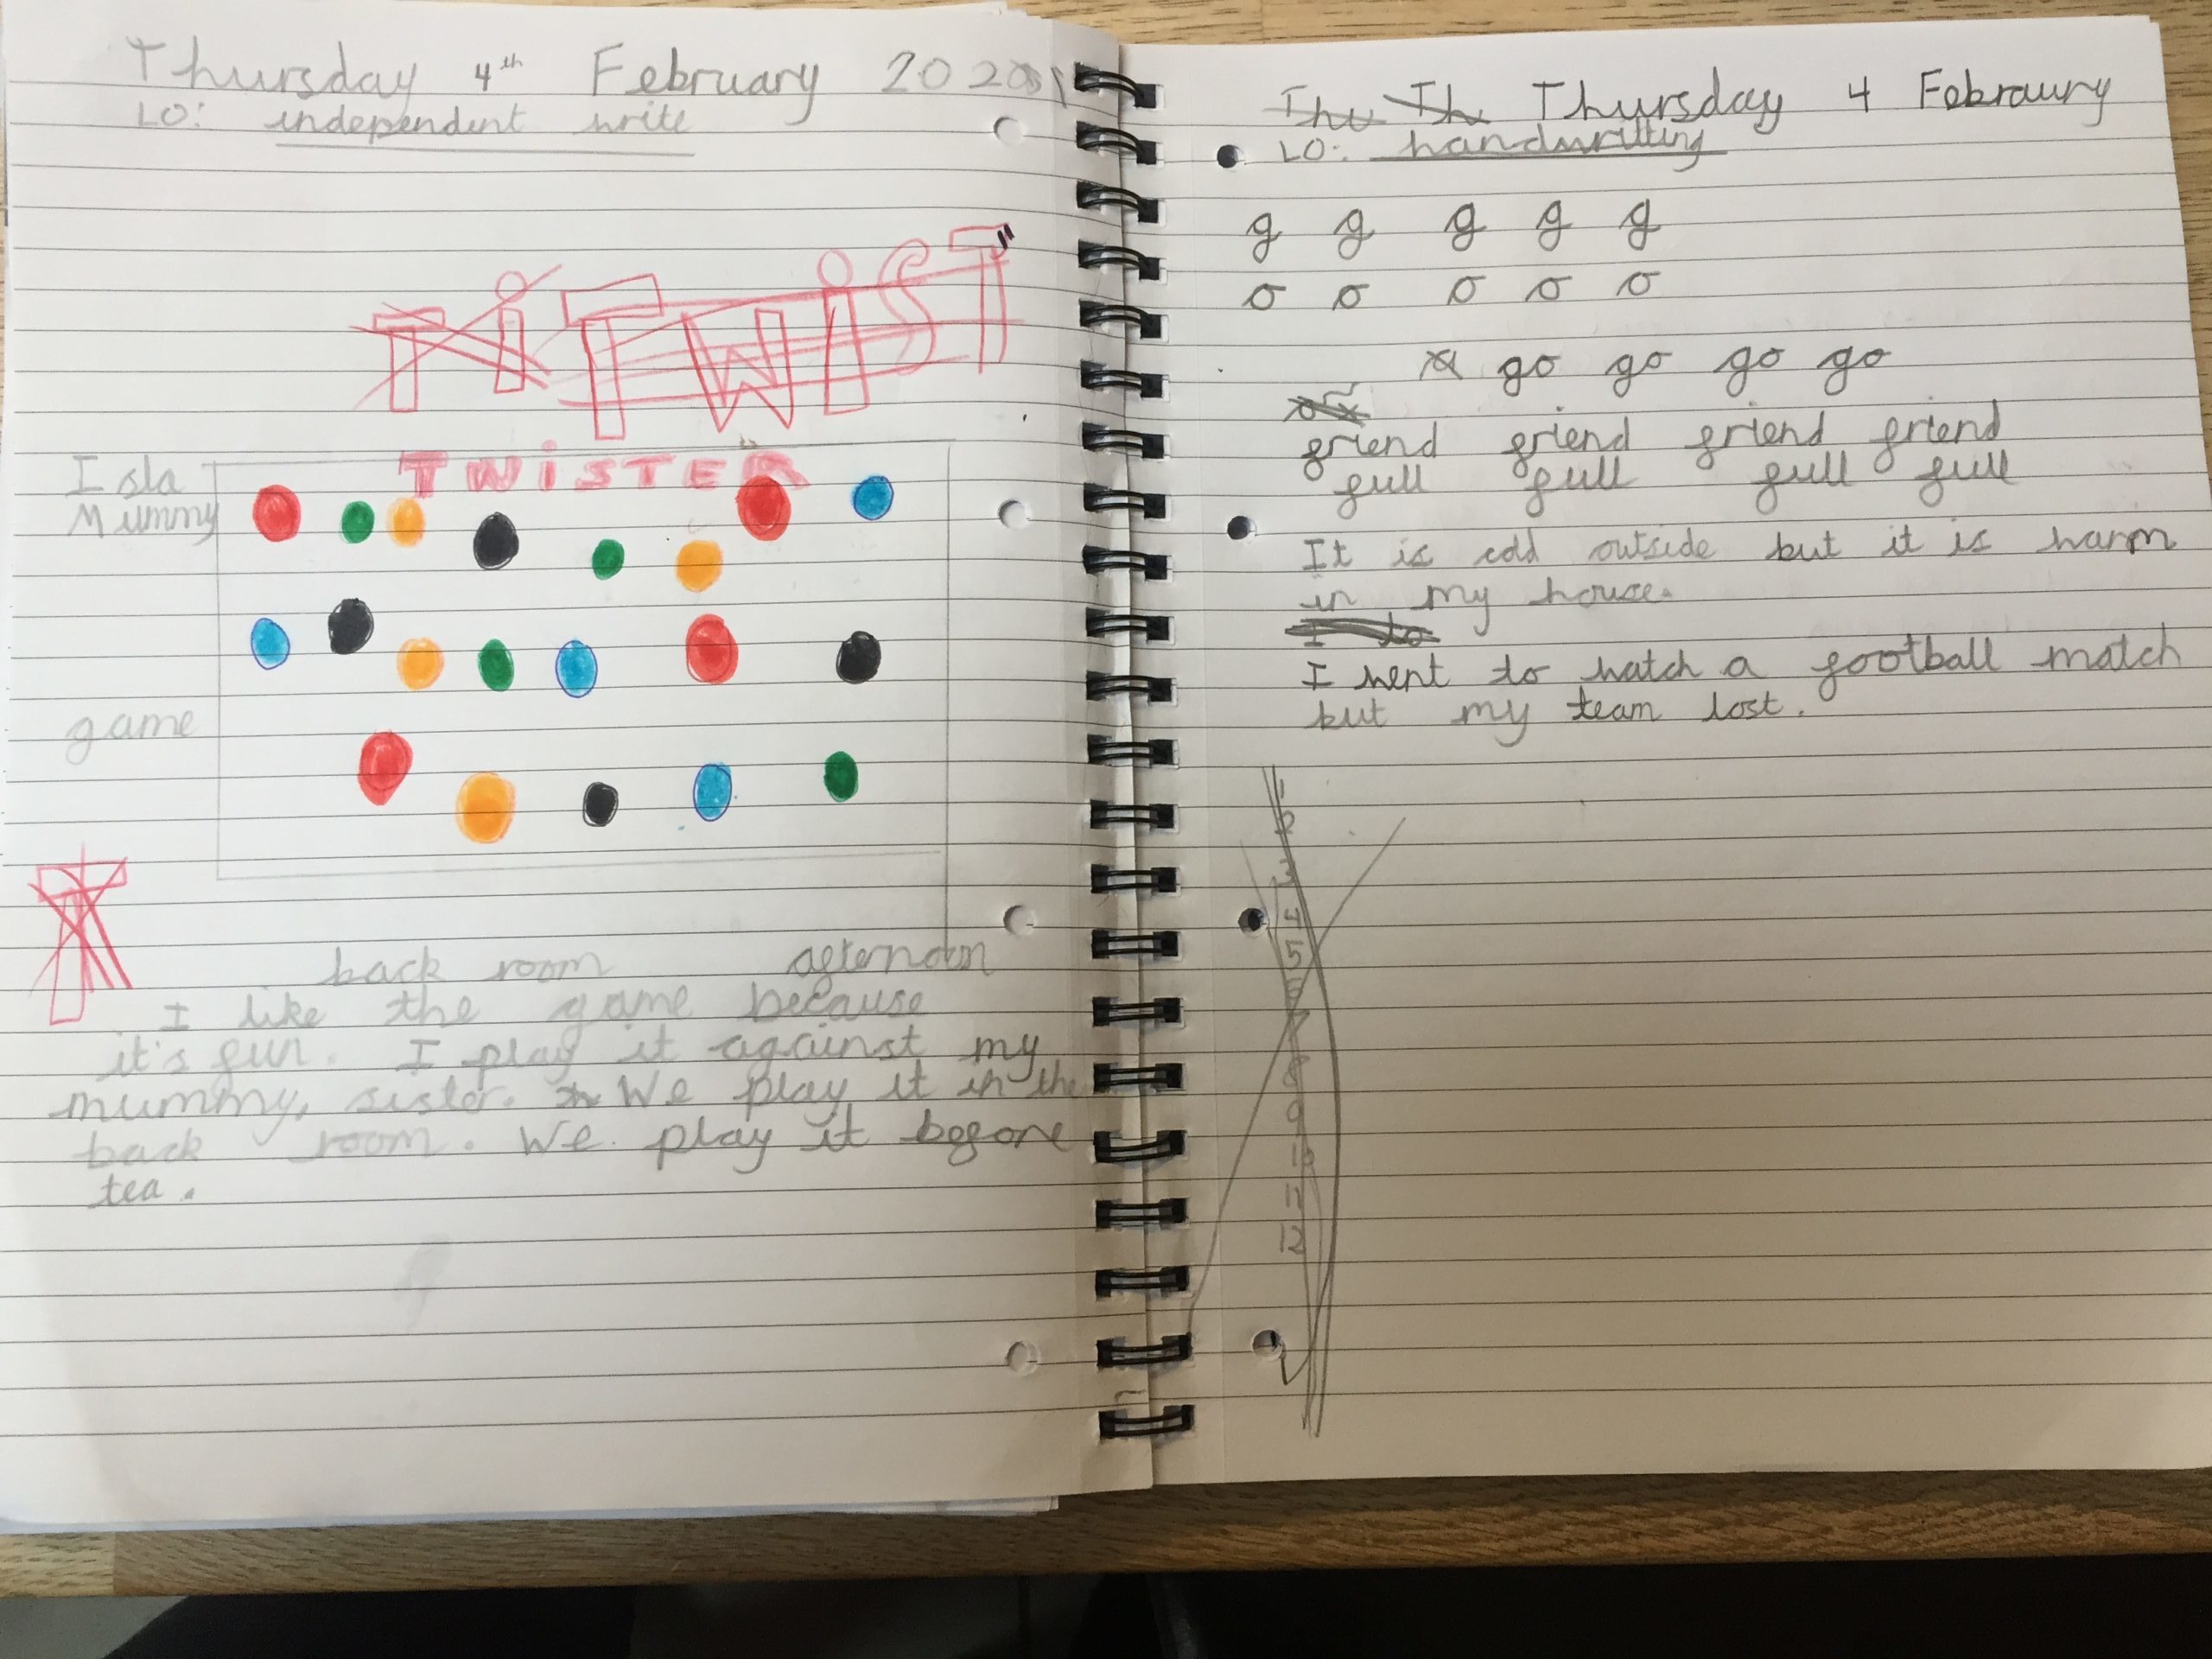 Thursday 4th February 2021
LO: independent write
Ti TWiST
TWiSTER
Isla
Mummy
game
T
back room afternoon
I like the game because
it's fun. I play it against my
mummy, sister. We play it in the
back room. We play it before
tea.
Thu Th Thursday 4 Febraury
LO: handwritting
g g g g g
o o o o o
go go go go
friend friend friend friend
full full full full
It is cold outside but it is warm
in my house.
I to
I went to watch a football match
but my team lost.
1
2
3
4
5
6
7
8
9
10
11
12